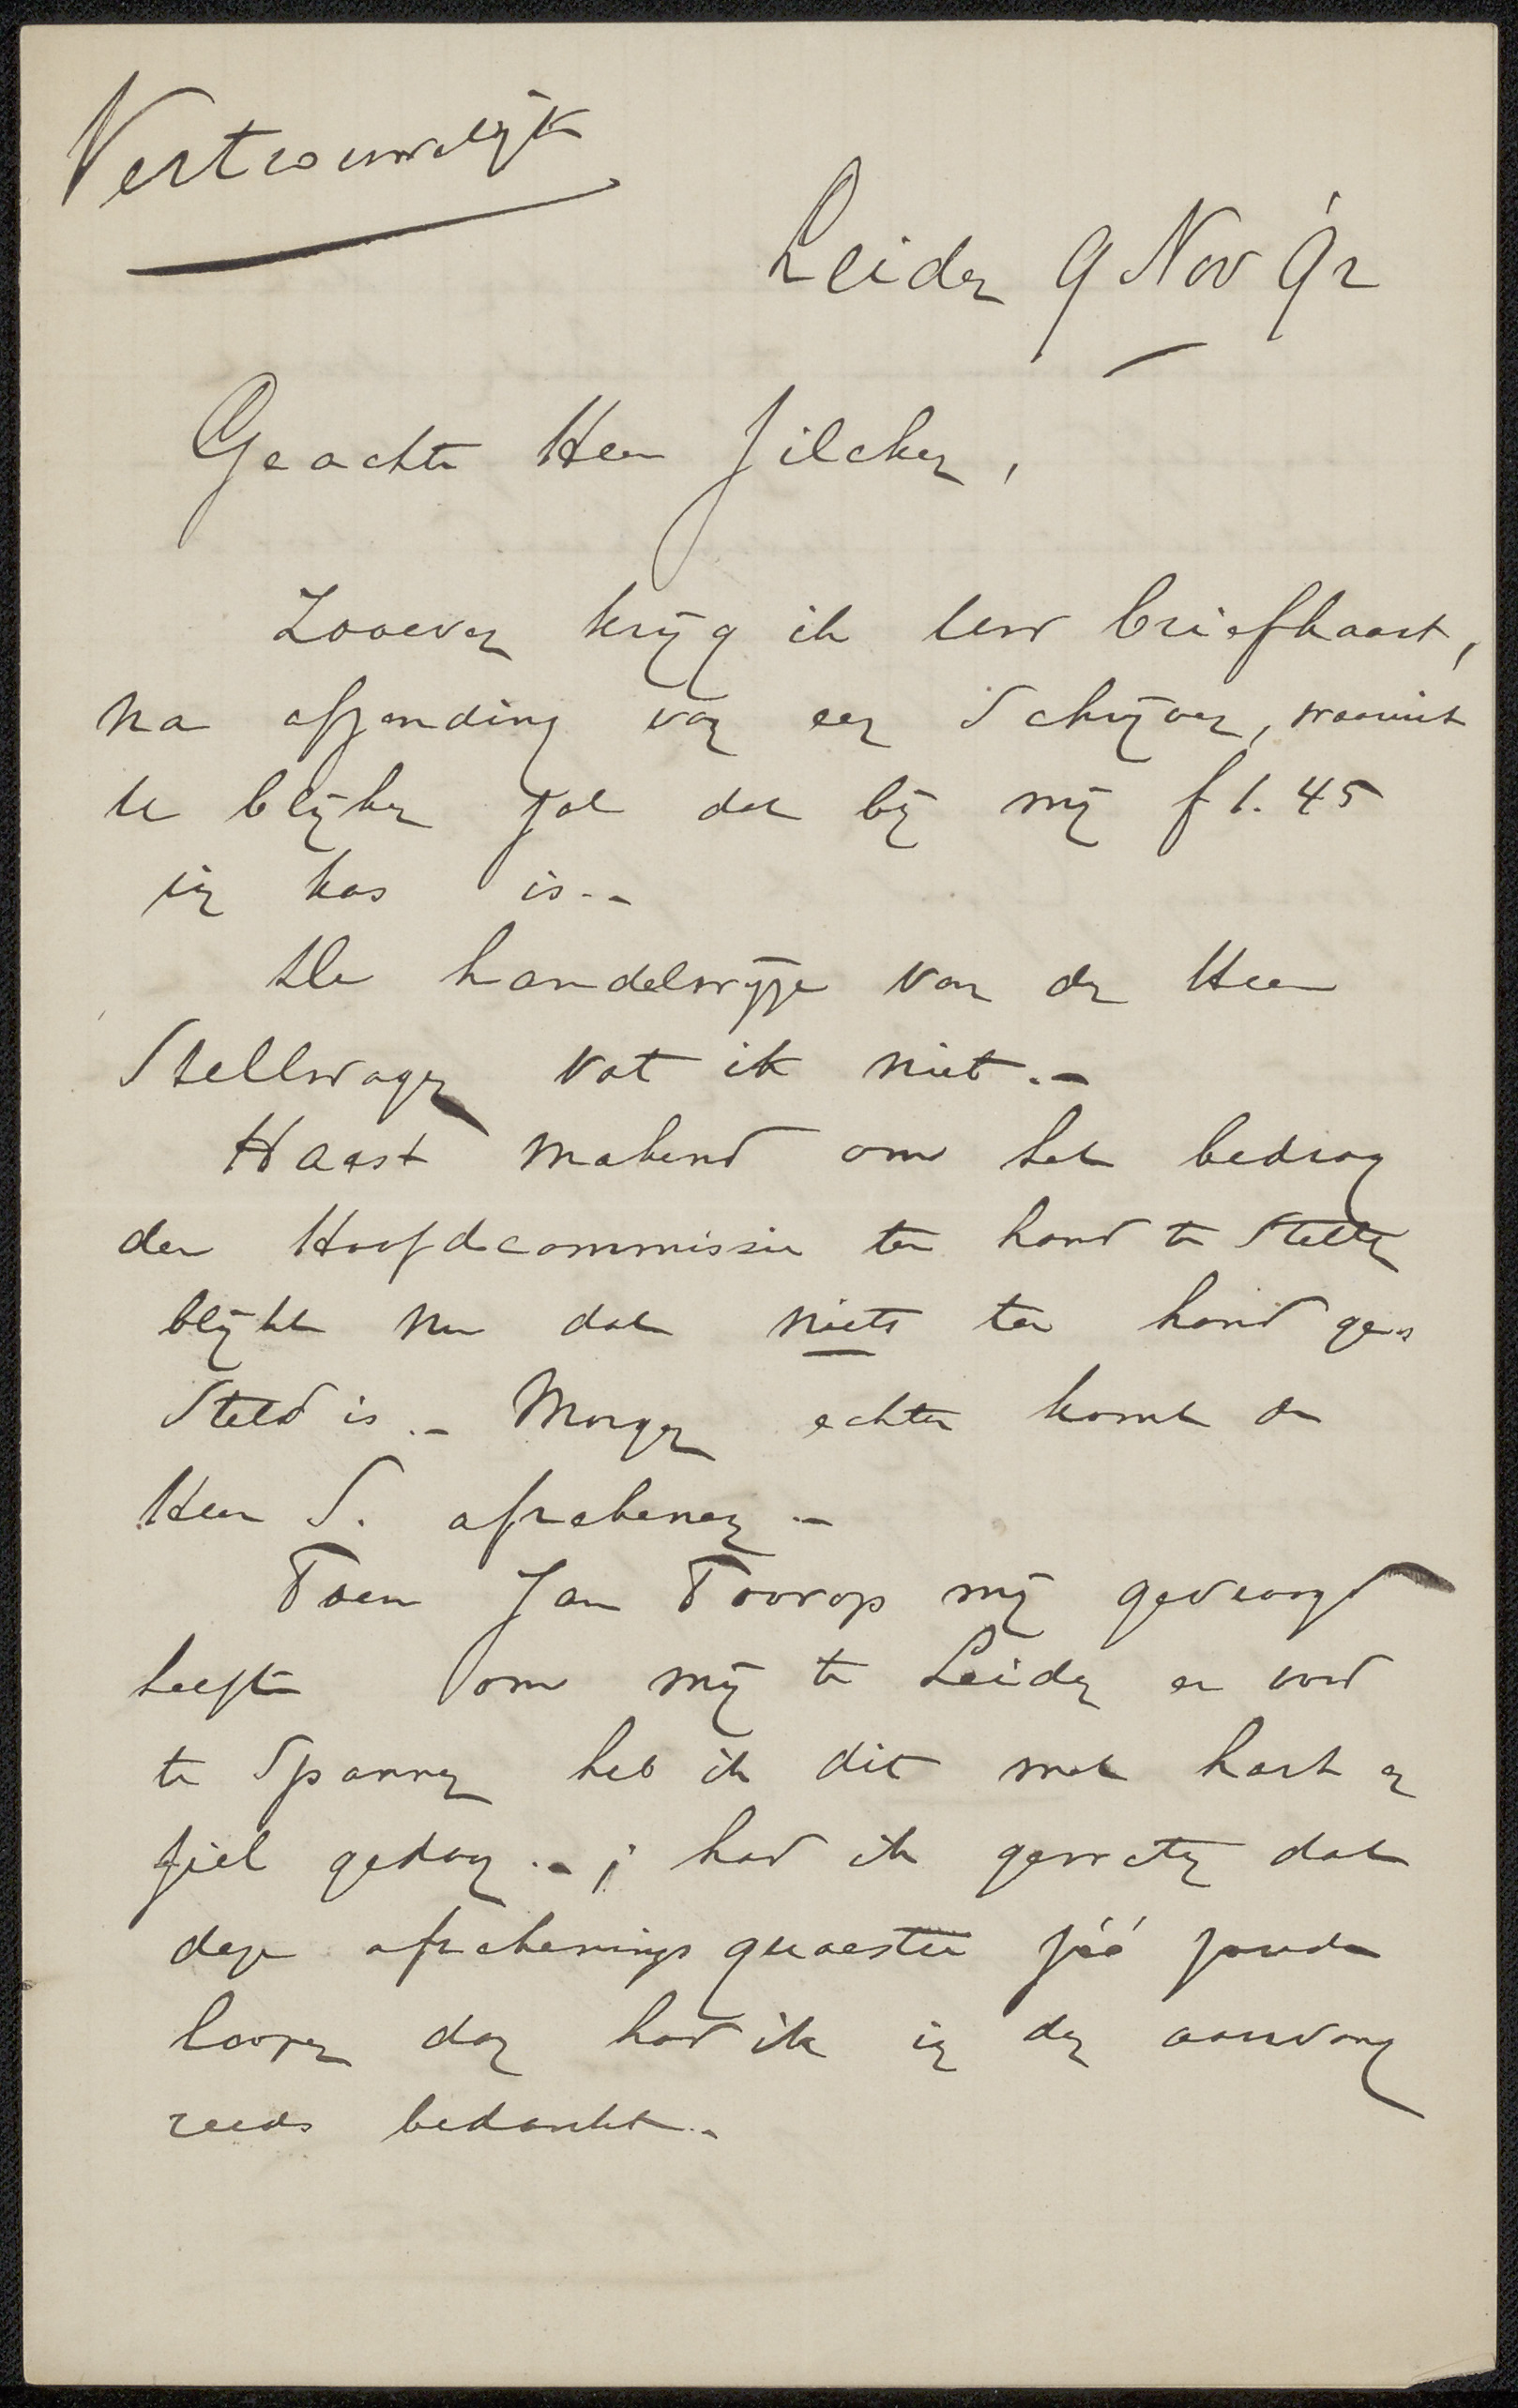 Vertrouwelijk
Leiden 9 Nov 92
Geachte Heer Zilcken,
Zooeven krijg ik Uw briefkaart,
na afzending van een schrijven, waaruit
U blijken zal dat bij mij f 1.45
in kas is.-
De handelwijze van den Heer
Stellwagen vat ik niet.-
Haast makend om het bedrag
der Hoofdcommissie ter hand te stellen
blijkt nu dat niets ter hand ge-
steld is.- Morgen echter komt de
Heer S. afrekenen.-
Toen Jan Toorop mij gevraagd
heeft om mij te Leiden er voor
te spannen heb ik dit met hart en
ziel gedaan.-; had ik geweten dat
deze afrekenings quaestie zóó zoude
loopen dan had ik in den aanvang
reeds bedankt.-